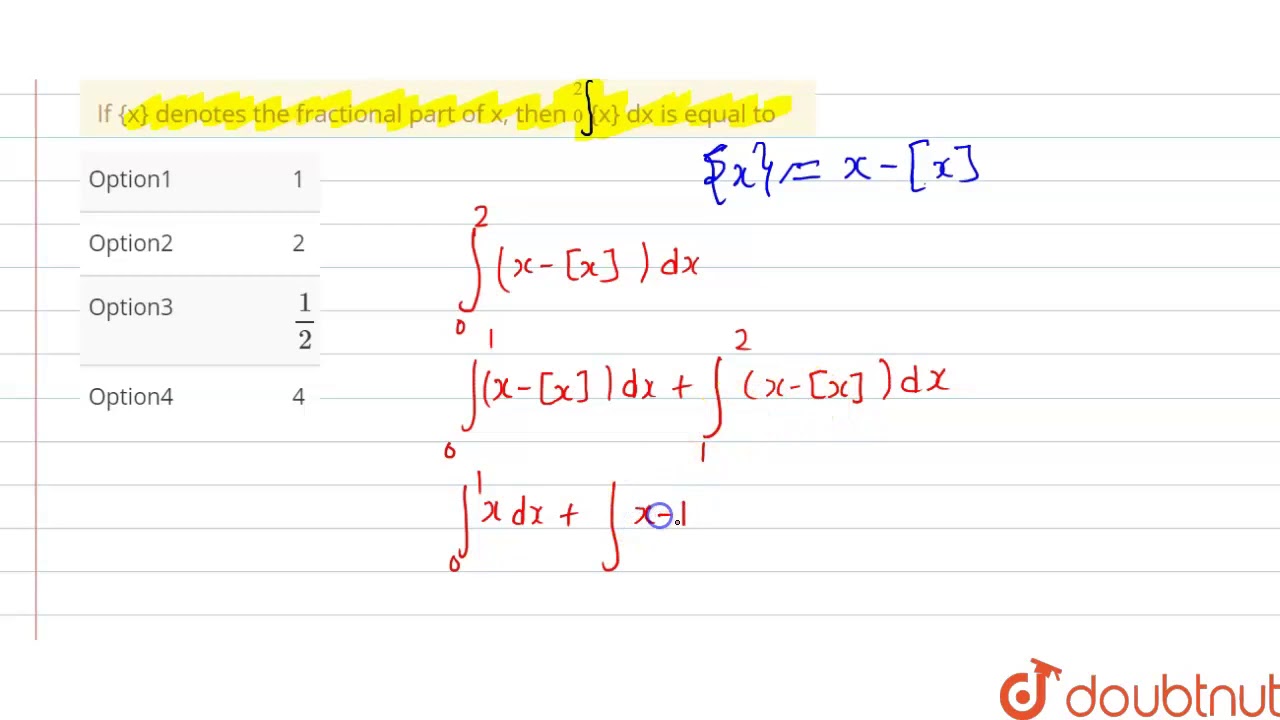 If {x} denotes the fractional part of x, then ₀²∫{x} dx is equal to
{x} = x - [x]
Option1 1
Option2 2
Option3 1/2
Option4 4
∫₀² (x - [x]) dx
∫₀¹ (x - [x]) dx + ∫₁² (x - [x]) dx
∫₀¹ x dx + ∫ x - 1
doubtnut